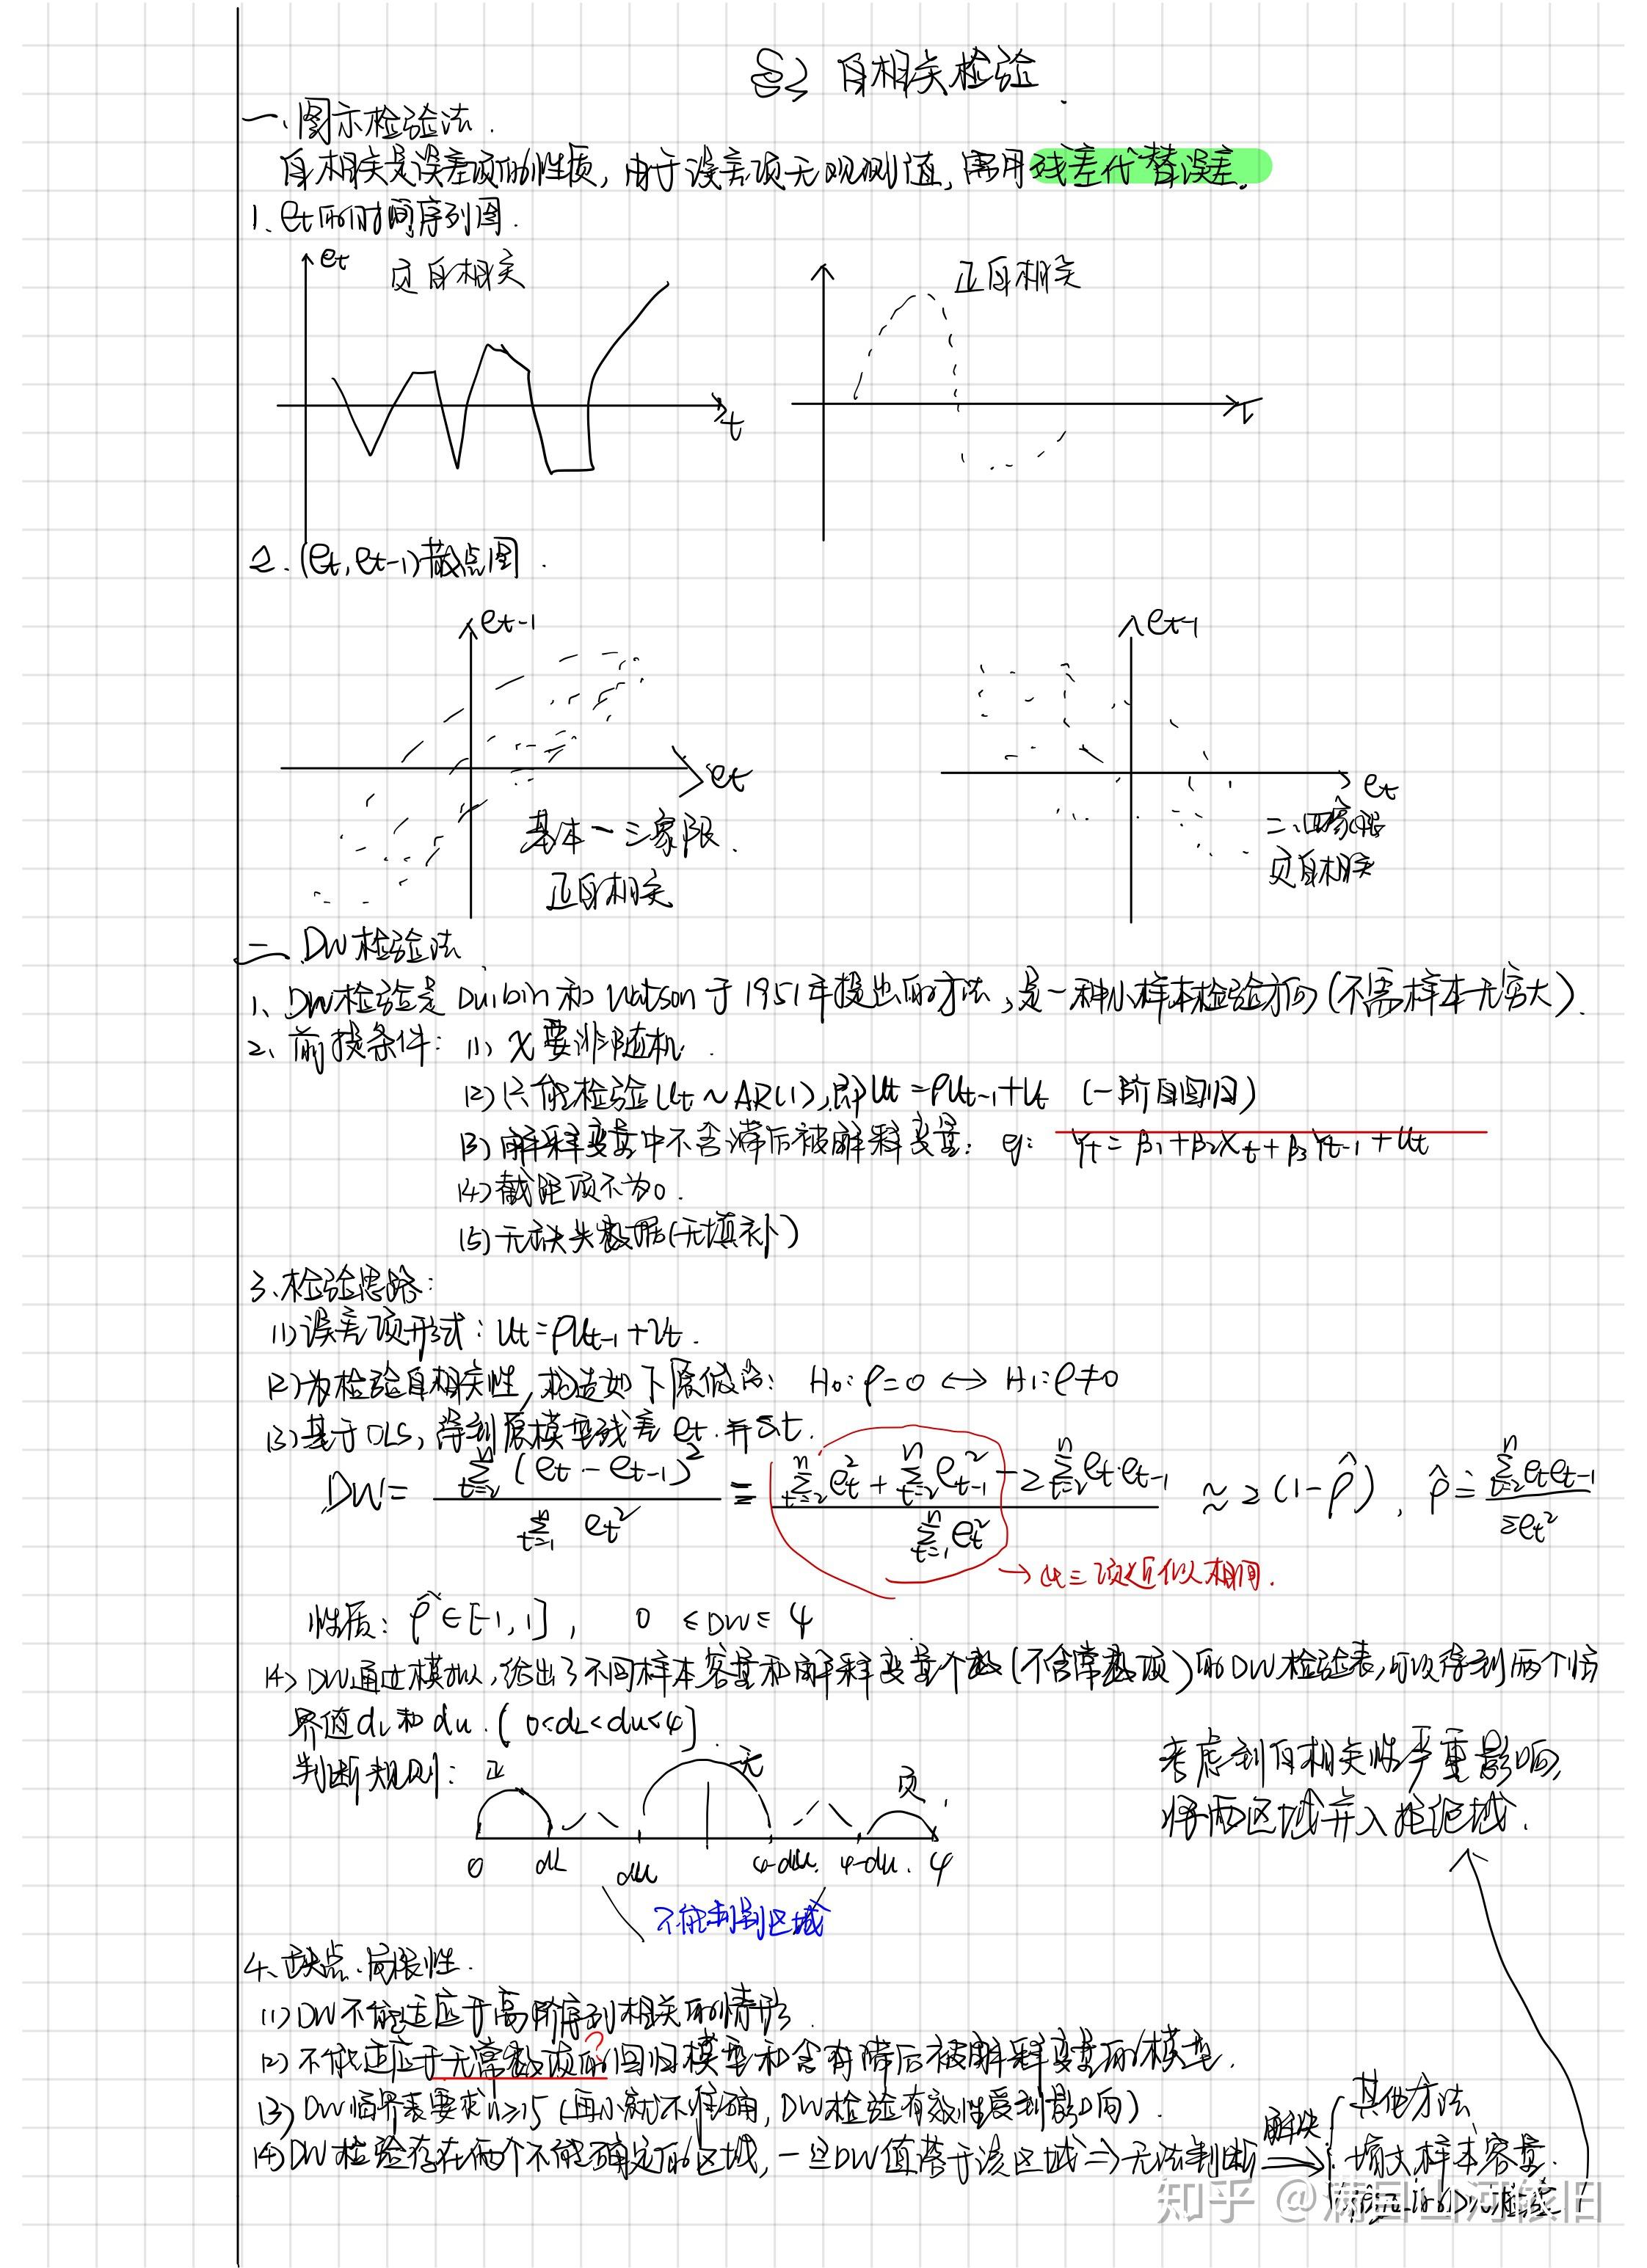 §2 自相关检验
一、图示检验法.
自相关是误差项的性质, 由于误差项无观测值, 需用残差代替误差.
1. et的时间序列图.
et 负自相关
t
正自相关
t
2. (et, et-1)散点图.
et-1
et
基本一三象限.
正自相关
et-1
et
二、四象限
负自相关
二、DW检验法
1、DW检验是 Durbin 和 Watson 于1951年提出的方法, 是一种小样本检验方向(不需样本无穷大).
2、前提条件: (1) X要非随机.
(2) 只能检验 Ut ~ AR(1), 即 Ut = ρUt-1 + Vt (一阶自回归)
(3) 解释变量中不含滞后被解释变量: eg: Yt = β1 + β2Xt + β3Yt-1 + Ut
(4) 截距项不为0.
(5) 无缺失数据(无填补)
3、检验思路:
(1) 误差项形式: Ut = ρUt-1 + Vt.
(2) 为检验自相关性, 构造如下原假设: H0: ρ=0 ↔ H1: ρ≠0
(3) 基于OLS, 得到原模型残差 et.
DW = Σ(t=2→n)(et - et-1)² / Σ(t=1→n) et² = [Σ(t=2→n) et² + Σ(t=2→n) et-1² - 2Σ(t=2→n) et·et-1] / Σ(t=1→n) et² ≈ 2(1-ρ̂), ρ̂ ≐ Σ(t=2→n) et et-1 / Σet²
→ 三项近似相同.
性质: ρ̂∈[-1, 1], 0 ≤ DW ≤ 4
(4) DW通过模拟, 给出了不同样本容量和解释变量个数(不含常数项)的DW检验表, 可以得到两个临
界值dL和du. [0<dL<du<4]
判断规则: 正 无 负
0 dL du 4-du 4-du. 4
不能判别区域
考虑到自相关性严重影响,
将两区域并入拒绝域.
4、缺点、局限性.
(1) DW不能适应于高阶序列相关的情形.
(2) 不能适应于无常数项的回归模型和含有滞后被解释变量的模型.
?
(3) DW临界表要求n≥15 (再小就不准确, DW检验有效性受到影响).
(4) DW检验存在两个不能确定的区域, 一旦DW值落于该区域 ⇒ 无法判断
解决
其他方法
增大样本容量.
知乎 @满目山河依旧